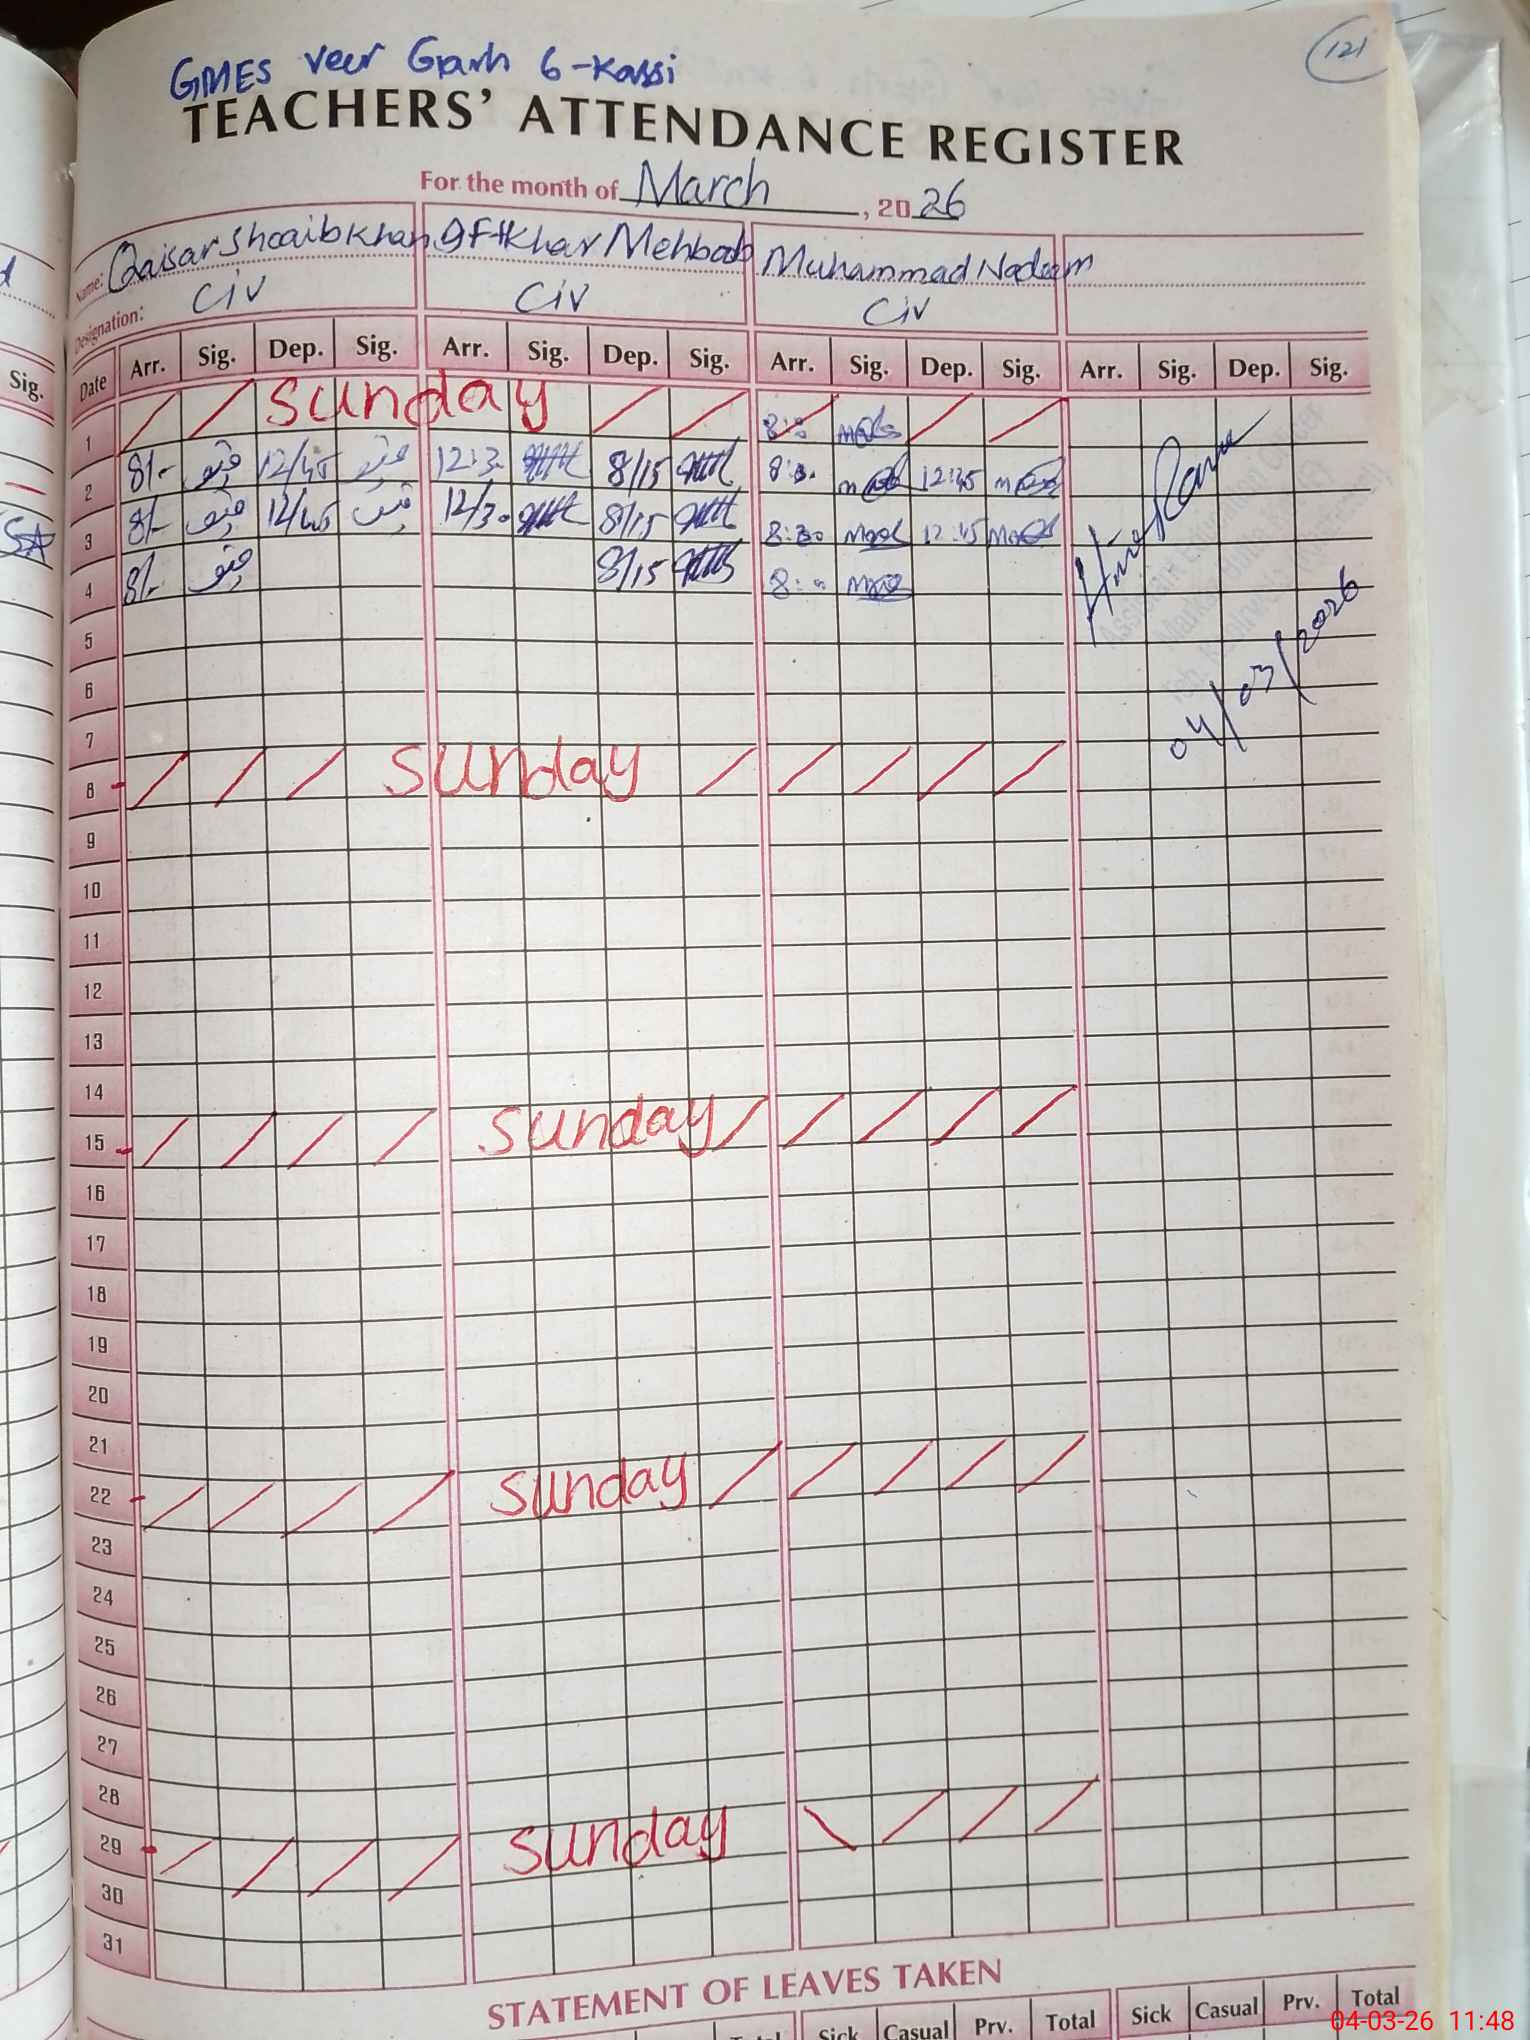 121
GMES veer Garh 6-Kassi
TEACHERS' ATTENDANCE REGISTER
For the month of March, 2026
Name: Qaisar Shoaib Khan Iftkhar Mehboob Muhammad Nadeem
Designation: Civ Civ Civ
Sig.
Date Arr. Sig. Dep. Sig. Arr. Sig. Dep. Sig. Arr. Sig. Dep. Sig. Arr. Sig. Dep. Sig.
1 sunday
2 8/- 12/45 12:3. 8/15 8:3. 12:45
3 8/- 12/45 12/3. 8/15 8:30 12:45
4 8/- 8/15
5
6
7
8 sunday
04/03/2026
9
10
11
12
13
14
15 sunday
16
17
18
19
20
21
22 sunday
23
24
25
26
27
28
29 sunday
30
31
STATEMENT OF LEAVES TAKEN
Total Sick Casual Prv. Total Sick Casual Prv. Total
04-03-26 11:48